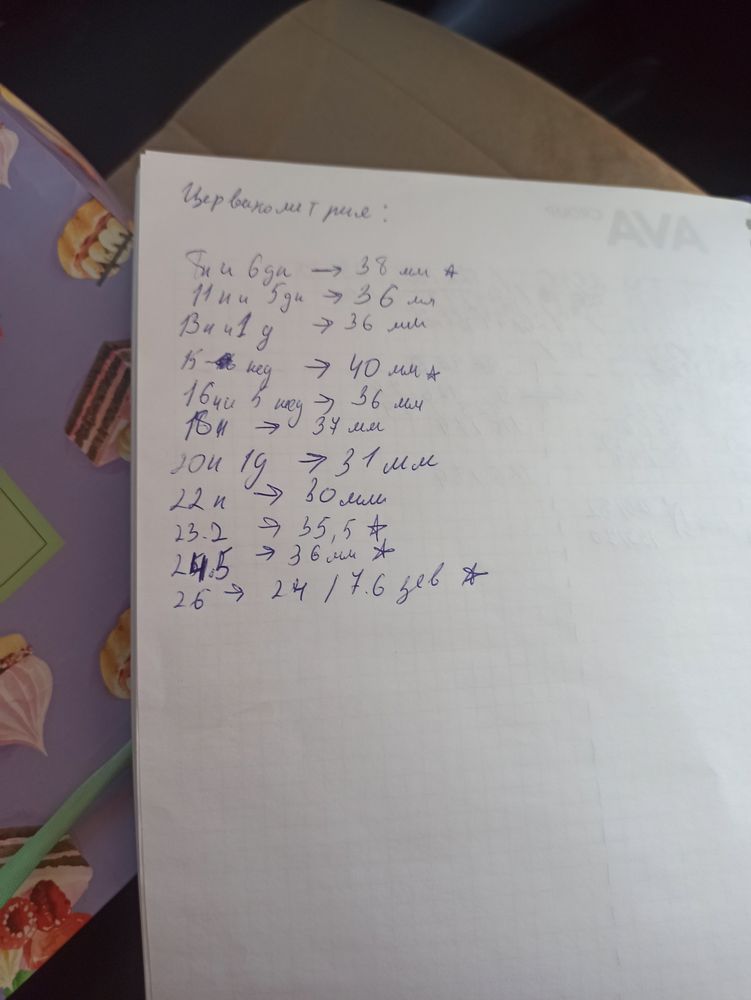 Цервикометрия:
8н и 6дн → 38 мм ☆
11н и 5дн → 36 мм
13н и 1 д → 36 мм
15 нед → 40 мм ☆
16н и 5 нед → 36 мм
18н → 37 мм
20н 1д → 31 мм
22н → 30 мм
23.2 → 35,5 ☆
24.5 → 36 мм ☆
26 → 24 / 7.6 зев ☆
AVA GROUP